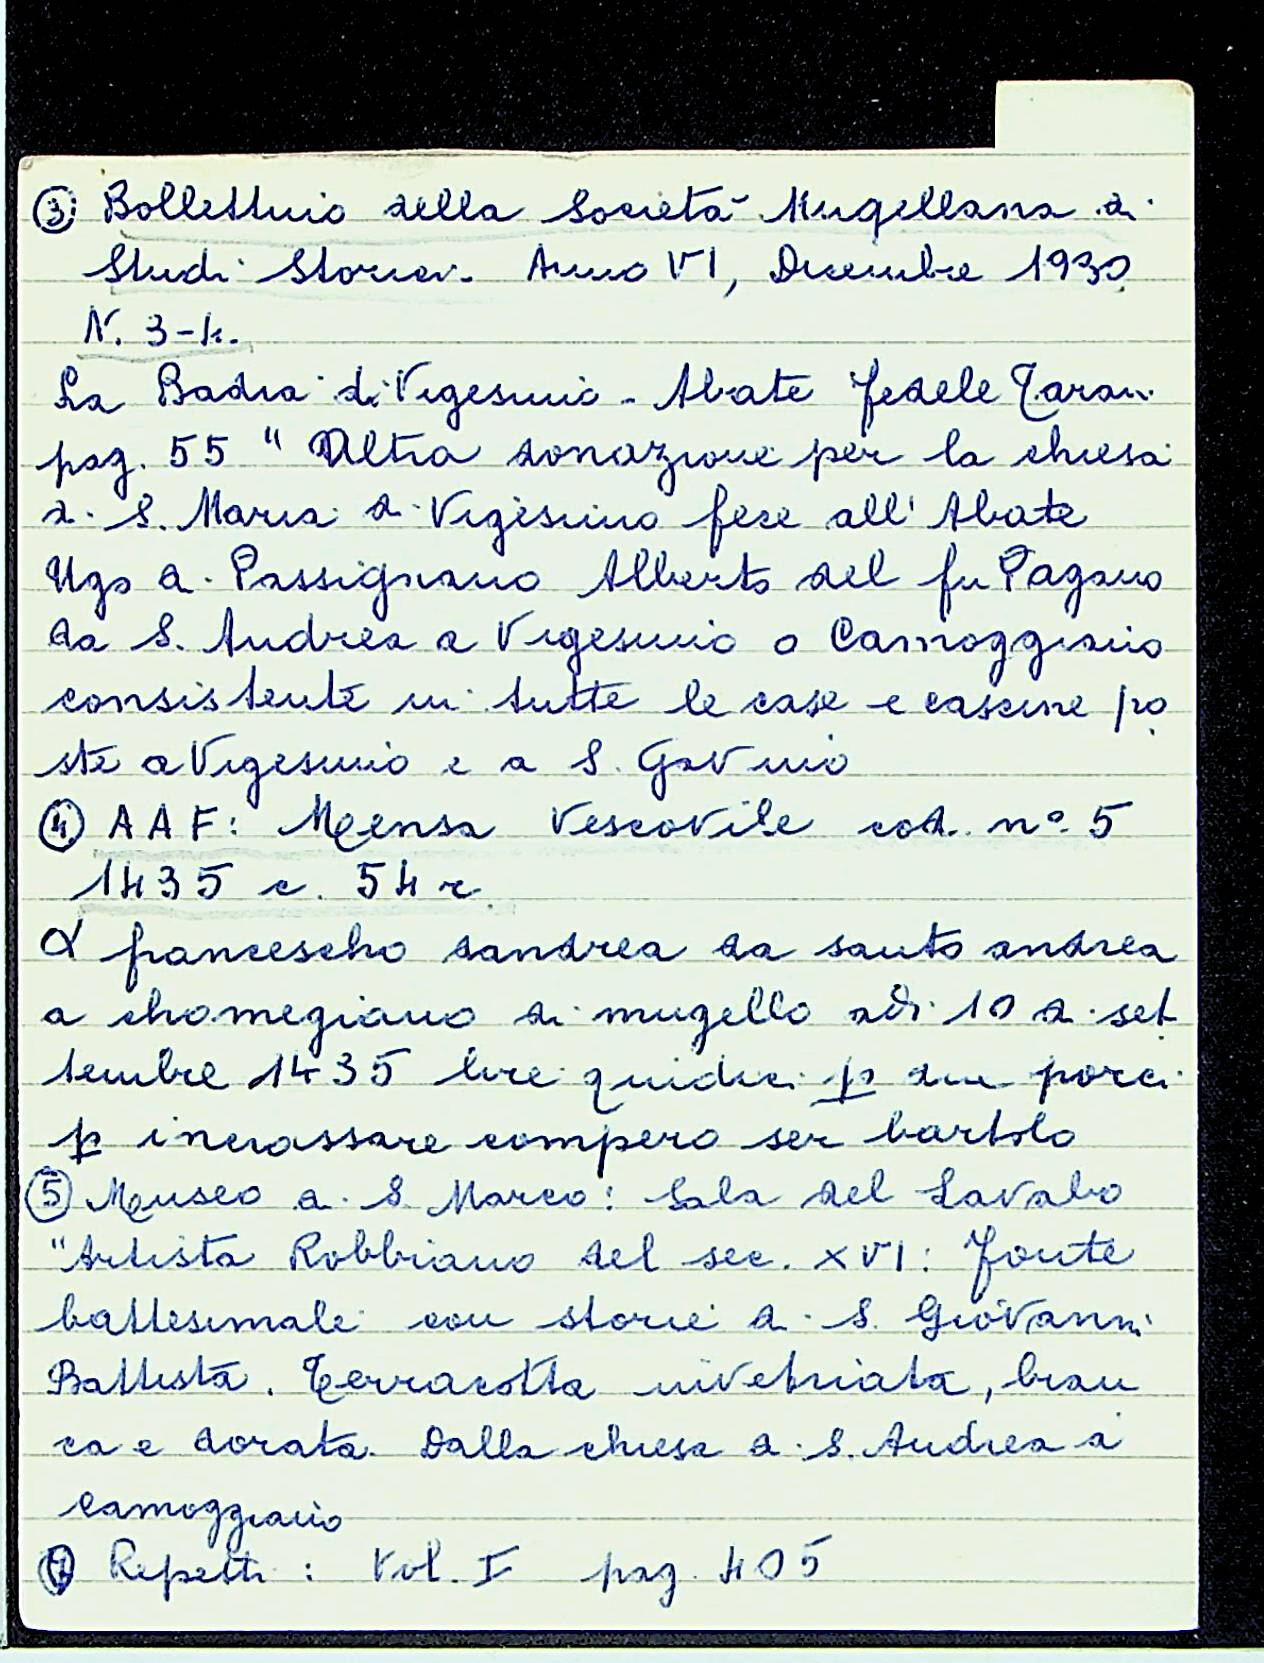 ③ Bollettino della Società Mugellana di
Studi Storici. Anno VI, Dicembre 1930
N. 3-4.
La Badia di Vigesimo - Abate Fedele Tarani
pag. 55 " Altra donazione per la chiesa
di S. Maria di Vigesimo fece all' Abate
Ugo di Passignano Alberto del fu Pagano
da S. Andrea a Vigesimo o Camoggiano
consistente in tutte le case e cascine po
ste a Vigesimo e a S. Gavino
④ AAF: Mensa Vescovile cod. nº 5
1435 c. 54 r.
francescho dandrea da santo andrea
a chomegiano di mugello adi 10 di set
tembre 1435 lire quidici p due porci
p incrassare compero ser bartolo
⑤ Museo di S. Marco: Sala del Lavabo
"Artista Robbiano del sec. XVI: Fonte
battesimale con storie di S. Giovanni
Battista. Terracotta invetriata, bian
ca e dorata. Dalla chiesa di S. Andrea a
Camoggiano
Repetti: Vol. I pag. 405